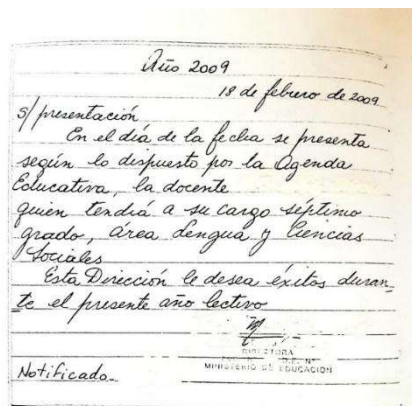 Año 2009
18 de febrero de 2009
s/presentación
En el día de la fecha se presenta
según lo dispuesto por la Agenda
Educativa, la docente
quien tendrá a su cargo séptimo
grado, área Lengua y Ciencias
Sociales
Esta Dirección le desea éxitos duran_
te el presente año lectivo
DIRECTORA
MINISTERIO DE EDUCACIÓN
Notificado_